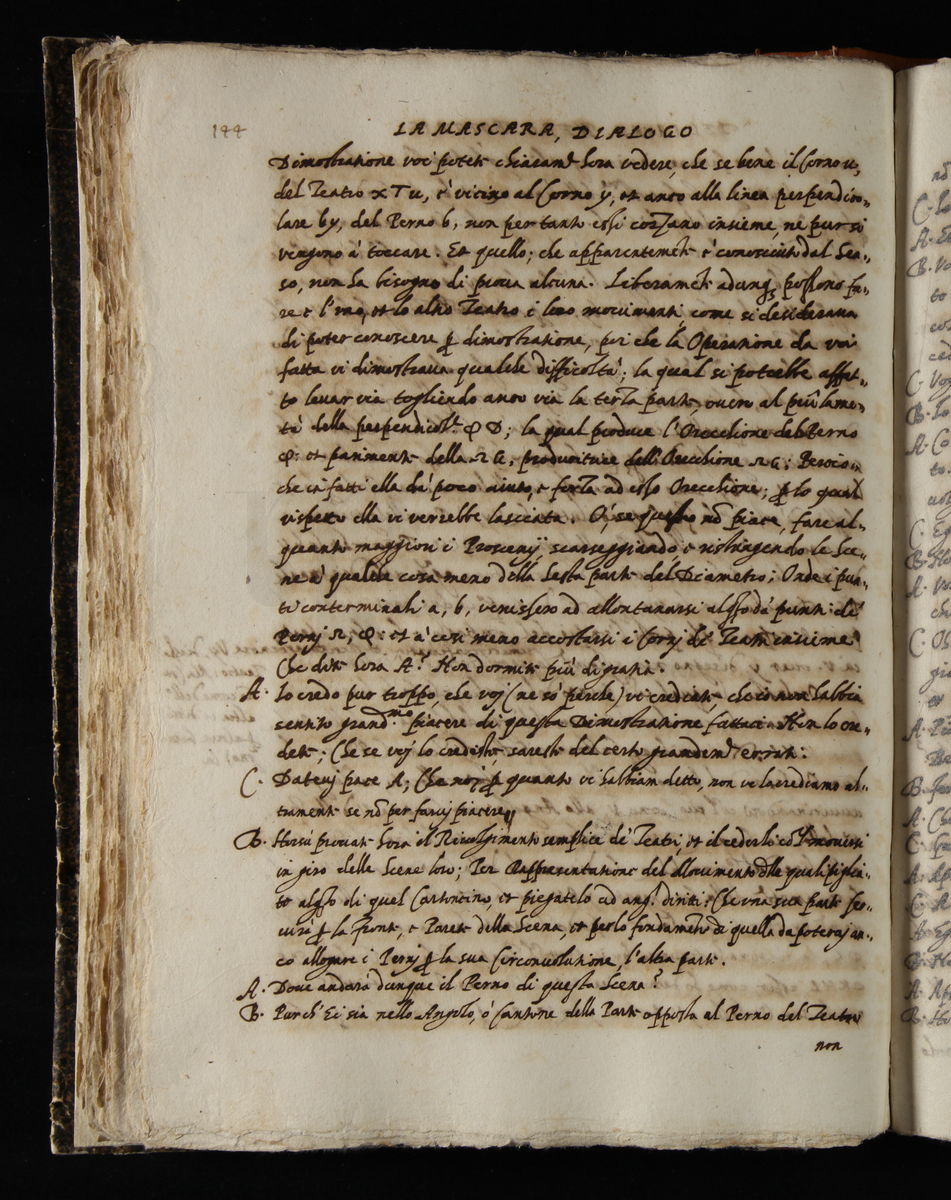 144
LA MASCARA, DIALOGO
Dimostratione voi potete chiaramte hora vedere, che se bene il Corno u,
del Teatro x T u, è vicino al Corno y, et anco alla linea perpendico„
lare b y, del Perno b, non per tanto essi cozzano insieme, ne pur si
vengono à toccare. Et quello, che apparentemente è conosciuto dal Sen„
so, non ha bisogno di prova alcuna. Liberamente adunq; possono fa„
re e l'uno, et lo altro Teatro i loro movimenti come si desiderava
di poter conoscere p dimostratione, poi che la Operatione da voi
fatta vi dimostrava qualche difficoltà; la qual si potrebbe affat„
to levar via togliendo anco via la terza parte, overo al più la me„
tà della perpendicolre
la qual produce l'Orecchione del Perno
et parimente della
produttrice dell' Orecchione
Percio„
che in fatti ella dà poco aiuto, e forza ad esso Orecchione; p lo qual
rispetto ella vi verrebbe lasciata. O, se questo nō piace, fare al„
quanto maggiori i Proscenij scarseggiando e ristringendo le Sce„
ne à qualche cosa meno della Sesta parte del Diametro; Onde i pun„
ti conterminali a, b, venissero ad allontanarsi alqto da' punti de'
Pernj
et à così meno accostarsi i Cornj de' Teatri insieme.
Che dite hora A? Non dormite più di gratia.
A. Io credo pur troppo, che voj (ne sò perche) vi crediate, che io non habbia
sentito grandmo piacere di questa Dimostratione fattaci. Non lo cre„
dete; Che se voj lo credeste, sareste del certo grandemte errante.
C. Datevj pace A; Che noi, p quanto vi habbiam detto, non ve la crediamo al„
tramente se nō per farvj piacere.
B. Horsù provate hora il Rivolgimento semplice de' Teatri, et il cederli co'l moversi
in giro delle Scene loro; Per Rappresentatione del Movimento delle quali piglia„
te alqto di quel Cartoncino, et piegatelo ad angli diritti; Che una sua parte ser„
virà p la fronte, e Parete della Scena, et per lo fondamento di quella da poterci an„
co allogare i Pernj p la sua Circonvolutione, l'altra parte.
A. Dove andarà dunque il Perno di questa Scena?
B. Purch' Ei sia nello Angolo, ò Cantone della Parte opposta al Perno del Teatro
non